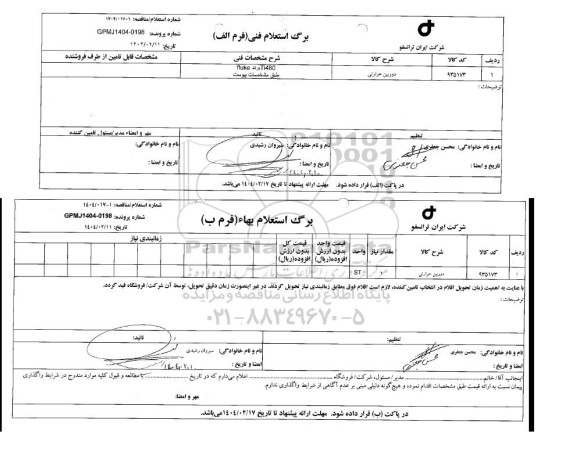 شماره استعلام/مناقصه: ۱-۱۴۰۴/۰۱۷
برگ استعلام فنی(فرم الف)
شماره پرونده: GPMJ1404-0198
تاریخ: ۱۴۰۴/۰۲/۱۱
شرکت ایران ترانسفو
ردیف کد کالا شرح کالا شرح مشخصات فنی مشخصات قابل تامین از طرف فروشنده
۱ ۹۳۵۱۷۳ دوربین حرارتی Ti480 برند fluke
طبق مشخصات پیوست
توضیحات:
تنظیم تائید مهر و امضاء مدیر/مسئول تامین کننده
نام و نام خانوادگی: محسن جعفری نام و نام خانوادگی: سیروان رشیدی نام و نام خانوادگی:
تاریخ و امضا: تاریخ و امضا: تاریخ و امضا:
در پاکت (الف) قرار داده شود. مهلت ارائه پیشنهاد تا تاریخ ۱۴۰۴/۰۲/۱۷ می‌باشد.
شماره استعلام/مناقصه: ۱-۱۴۰۴/۰۱۷
برگ استعلام بهاء(فرم ب)
شماره پرونده: GPMJ1404-0198
تاریخ: ۱۴۰۴/۰۲/۱۱
شرکت ایران ترانسفو
ردیف کد کالا شرح کالا مقدار نیاز واحد قیمت واحد بدون ارزش افزوده(ریال) قیمت کل بدون ارزش افزوده(ریال) زمانبندی نیاز
۱ ۹۳۵۱۷۳ دوربین حرارتی ST
با عنایت به اهمیت زمان تحویل اقلام در انتخاب تامین کننده، لازم است اقلام فوق مطابق زمانبندی نیاز تحویل گردند. در غیر اینصورت زمان دقیق تحویل، توسط آن شرکت/فروشگاه قید گردد.
توضیحات:
پایگاه اطلاع رسانی مناقصه و مزایده
۰۲۱-۸۸۳۴۹۶۷۰-۵
تنظیم: تائید:
نام و نام خانوادگی: محسن جعفری نام و نام خانوادگی: سیروان رشیدی
امضا و تاریخ: امضا و تاریخ:
اینجانب آقا/خانم مدیر/مسئول، شرکت/فروشگاه اعلام می‌دارم که در تاریخ با مطالعه و قبول کلیه موارد مندرج در شرایط واگذاری
پیمان نسبت به ارائه قیمت طبق مشخصات اقدام نموده و هیچ گونه دلیلی مبنی بر عدم آگاهی از شرایط واگذاری ندارم.
مهر و امضا:
در پاکت (ب) قرار داده شود. مهلت ارائه پیشنهاد تا تاریخ ۱۴۰۴/۰۲/۱۷ می‌باشد.